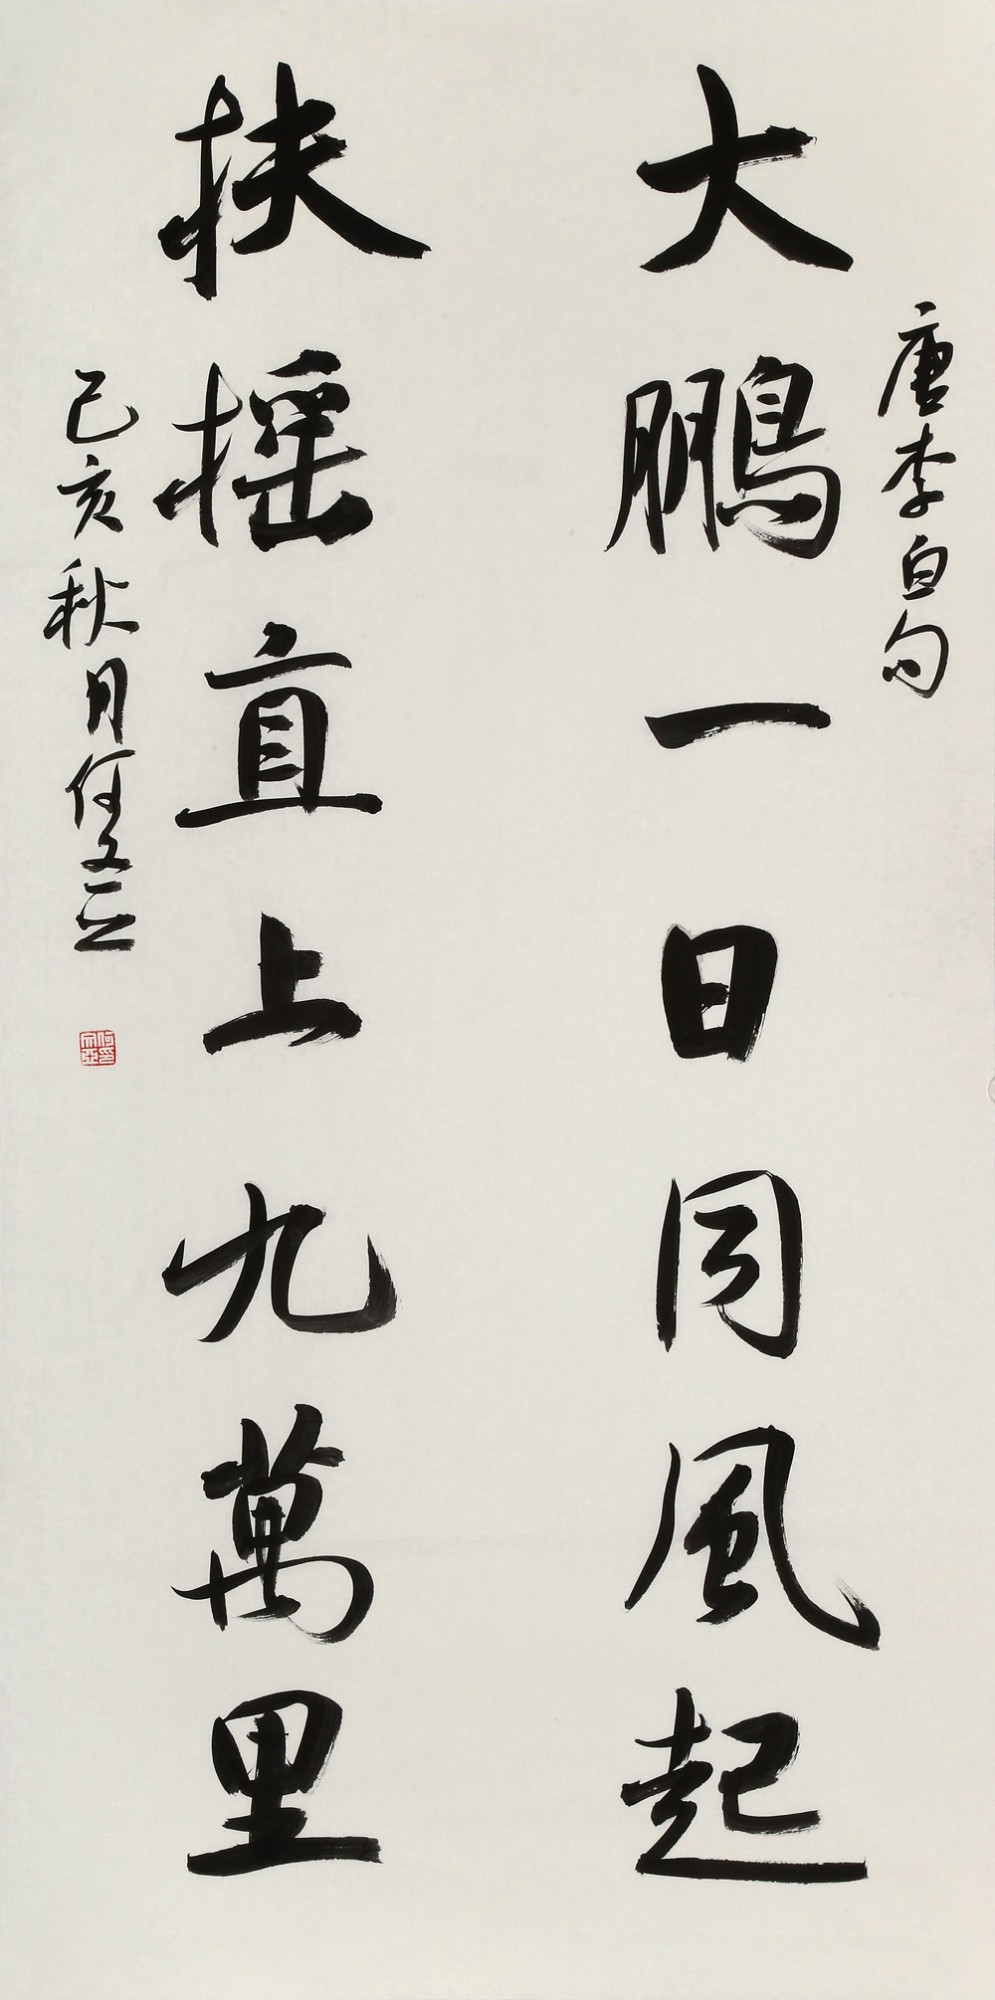 唐李白句
大鵬一日同風起
扶搖直上九萬里
己亥秋月何